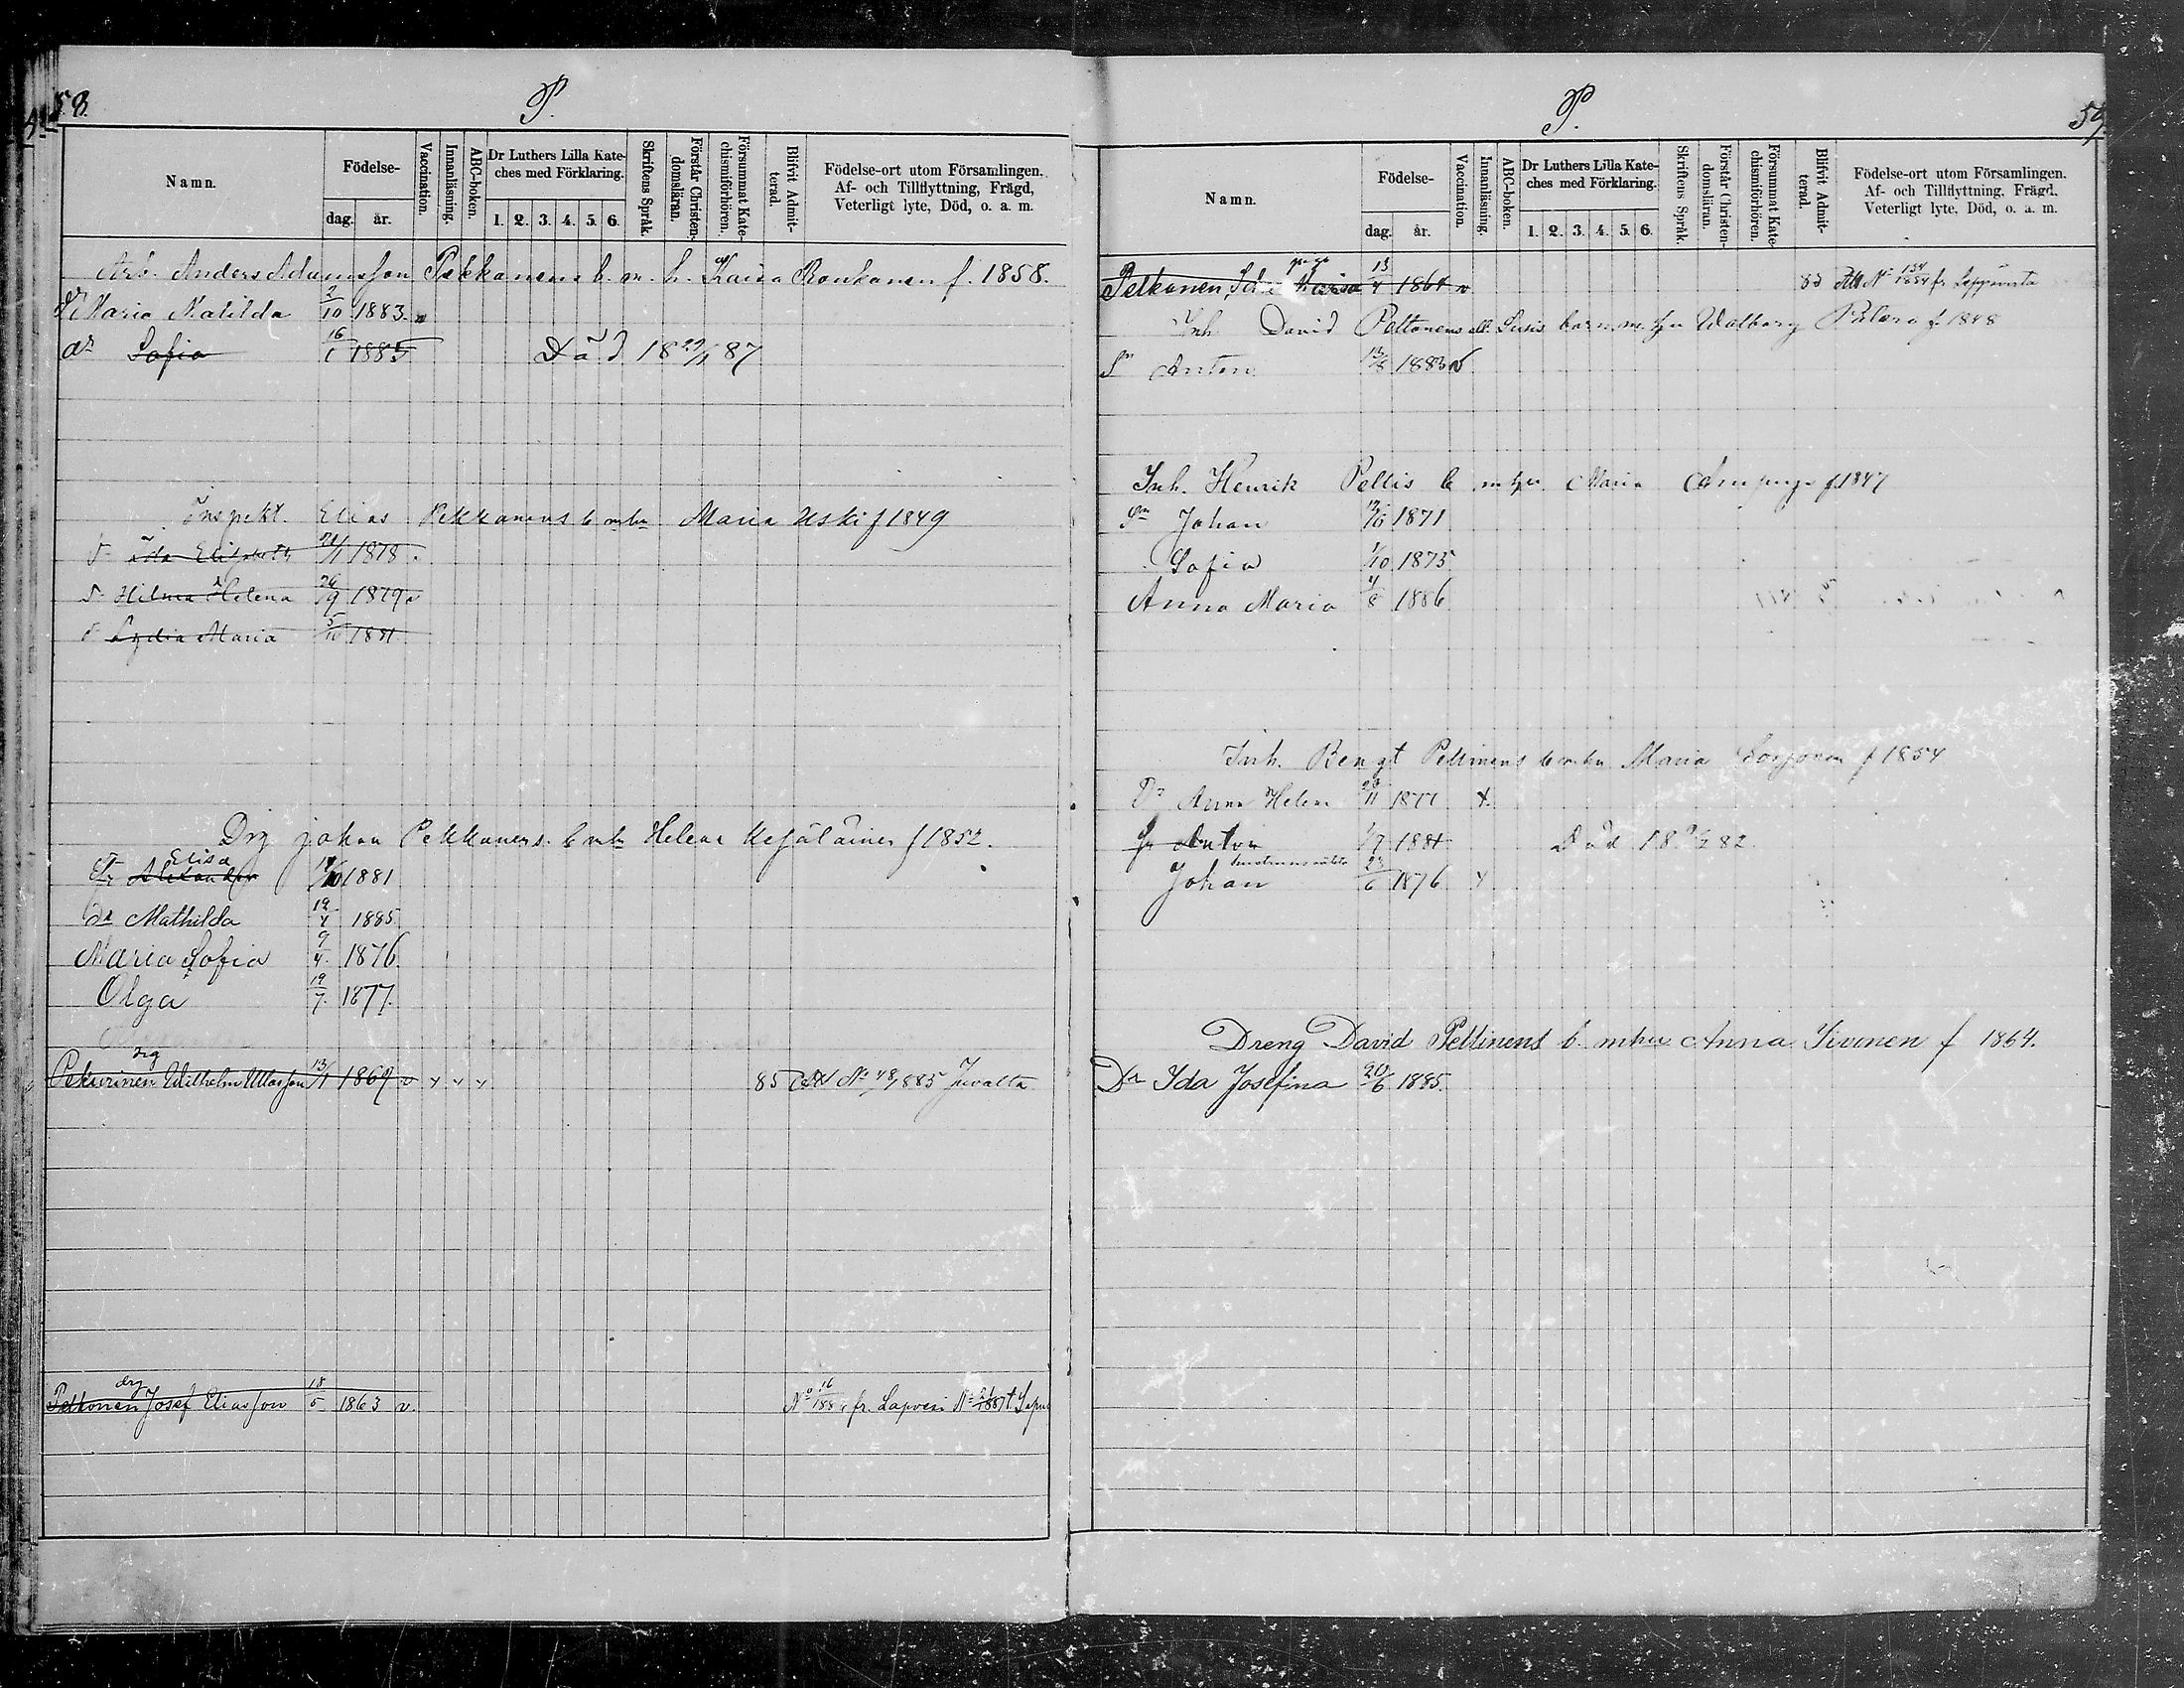 58.
P.
Namn.
Födelse-
dag.
år.
Vaccination.
Innanläsning.
ABC-boken.
Dr Luthers Lilla Kate-
ches med Förklaring.
1. 2. 3. 4. 5. 6.
Skriftens Språk.
Förstår Christen-
domsläran.
Försummat Kate-
chismiförhören.
Blifvit Admit-
terad.
Födelse-ort utom Församlingen.
Af- och Tillflyttning, Frägd,
Veterligt lyte, Död, o. a. m.
Arb. Anders Adamsson Pekkanens b. m. h. Kaisa Ronkanen f. 1858.
dr Maria Matilda 2/10 1883. v
dr Sofia 16/1 1885 Död 18 29/1 87
Inspekt. Elias Pekkanens b m hu Maria Uski f 1849
Ida Elisabeth 21/1 1878
Hilma Helena 26/9 1879 v
Lydia Maria 5/10 1881
Drg Johan Pekkanens b m hu Helena f 1852.
Elisa
Alexander 1881
dr Mathilda 19/4 1885
Maria Sofia 9/4. 1876.
Olga 19/7. 1877.
drg
Pekurinen Wilhelm 13/1 1867 v v v v 85 No 48/885 Juvalta
drg
Petkonen Josef Eliasson 18/5 1863 v. No 16/188 fr. Lapvesi
P.
59.
Namn.
Födelse-
dag.
år.
Vaccination.
Innanläsning.
ABC-boken.
Dr Luthers Lilla Kate-
ches med Förklaring.
1. 2. 3. 4. 5. 6.
Skriftens Språk.
Förstår Christen-
domsläran.
Försummat Kate-
chismiförhören.
Blifvit Admit-
terad.
Födelse-ort utom Församlingen.
Af- och Tillflyttning, Frägd,
Veterligt lyte, Död, o. a. m.
piga
Pelkonen, Maria 13/4 1864 v Att No 134/1884 fr
Inh David Peltonens ell. Susis barn m. hu Walborg f. 1848
Sn Anton 13/8 1883 v
Inh. Henrik Peltis b m hu Maria f 1847
Sn Johan 1871
Sofia 1/10 1875
Anna Maria 4/8 1886
Inh. Bengt Peltinens b m hu Maria f 1854
Dr Anna Helena 1877 x
Anton 1/7 1881 Död 82.
Johan 23/6 1876 x
Dreng David Peltinens b. m hu Anna Sivonen f 1864.
Dr Ida Josefina 20/6 1885.